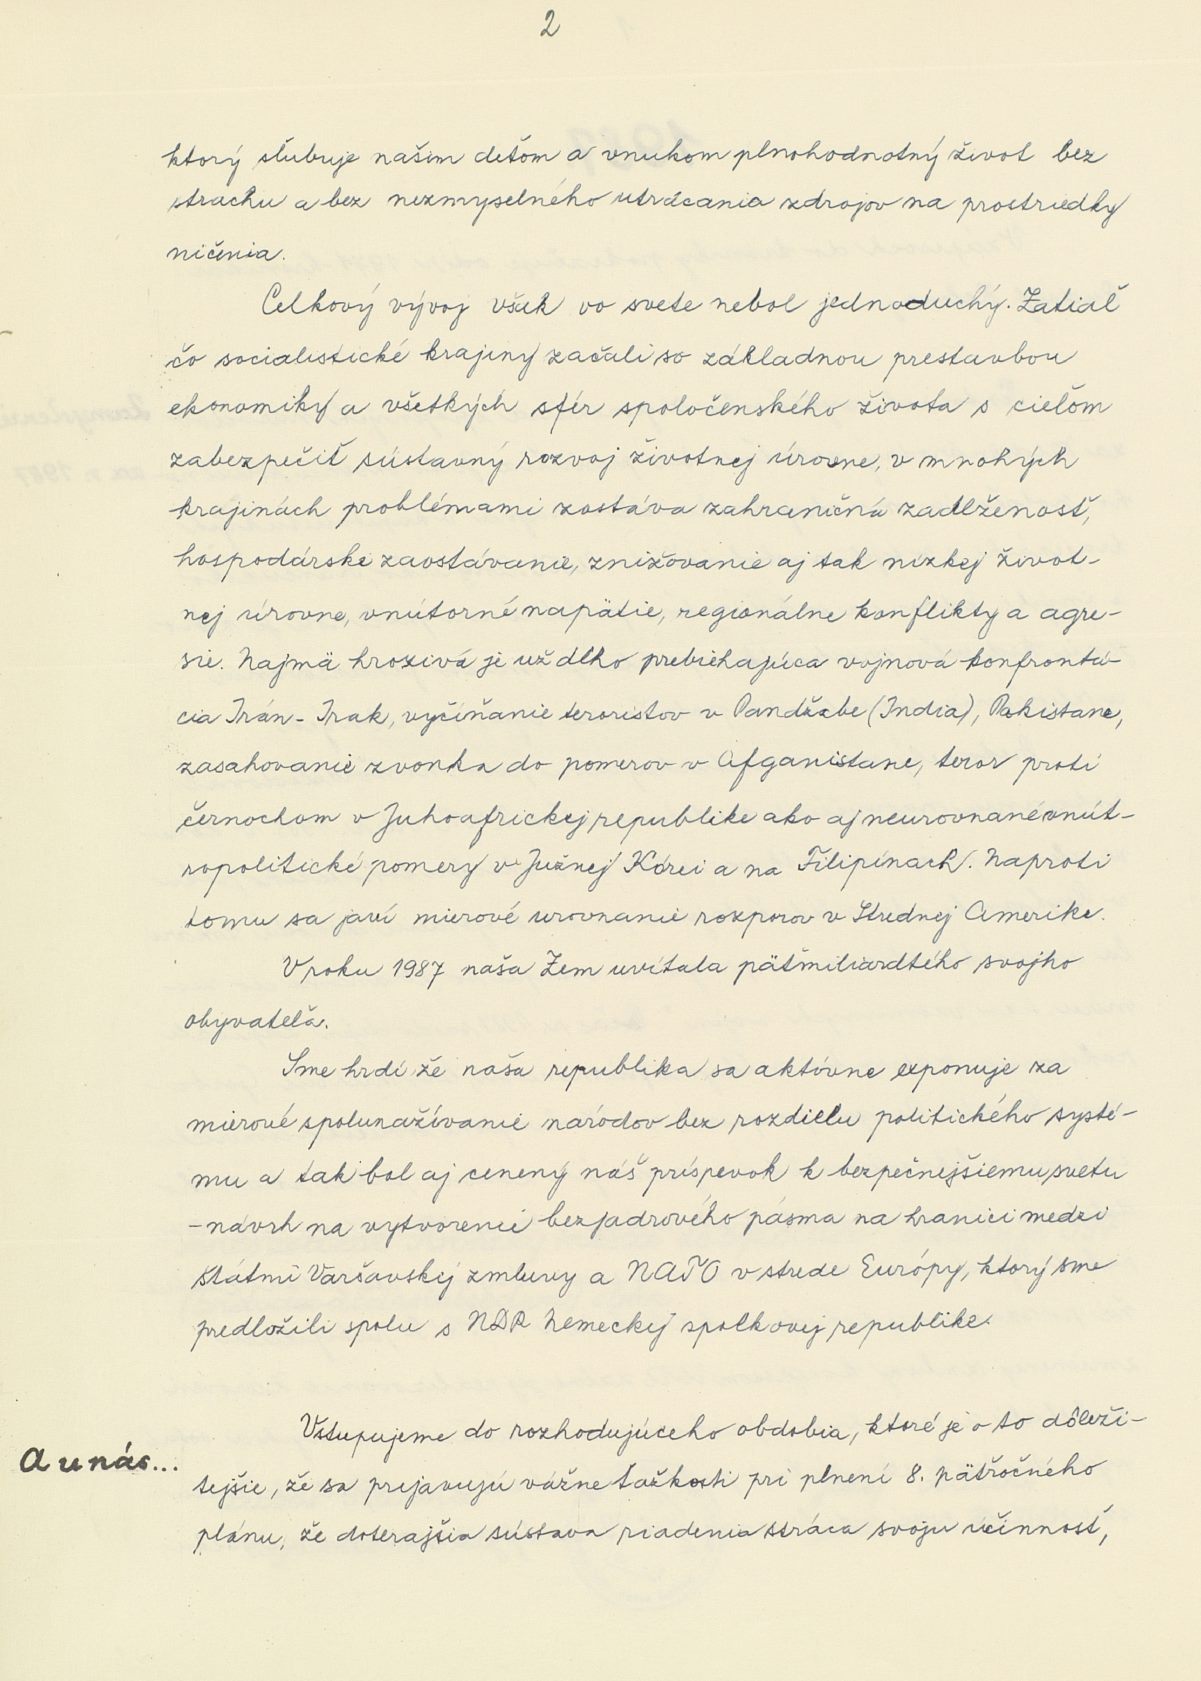 2
ktorý sľubuje našim deťom a vnukom plnohodnotný život bez
strachu a bez nezmyselného utrácania zdrojov na prostriedky
ničenia.
Celkový vývoj však vo svete nebol jednoduchý. Zatiaľ
čo socialistické krajiny začali so základnou prestavbou
ekonomiky a všetkých sfér spoločenského života s cieľom
zabezpečiť sústavný rozvoj životnej úrovne, v mnohých
krajinách problémami zostáva zahraničná zadlženosť,
hospodárske zaostávanie, znižovanie aj tak nízkej život-
nej úrovne, vnútorné napätie, regionálne konflikty a agre-
sie. Najmä hrozivá je už dlho prebiehajúca vojnová konfrontá-
cia Irán - Irak, vyčíňanie teroristov v Pandžabe (India), Pakistane,
zasahovanie zvonka do pomerov v Afganistane, teror proti
černochom v Juhoafrickej republike ako aj neurovnané vnút-
ropolitické pomery v Južnej Kórei a na Filipínach. Naproti
tomu sa javí mierové urovnanie rozporov v Strednej Amerike.
V roku 1987 naša Zem uvítala päťmiliardtého svojho
obyvateľa.
Sme hrdí že naša republika sa aktívne exponuje za
mierové spolunažívanie národov bez rozdielu politického systé-
mu a tak bol aj cenený náš príspevok k bezpečnejšiemu svetu
- návrh na vytvorenie bezjadrového pásma na hranici medzi
štátmi Varšavskej zmluvy a NATO v strede Európy, ktorý sme
predložili spolu s NDR Nemeckej spolkovej republike.
Vstupujeme do rozhodujúceho obdobia, ktoré je o to dôleži-
A u nás...
tejšie, že sa prejavujú vážne ťažkosti pri plnení 8. päťročného
plánu, že doterajšia sústava riadenia stráca svoju účinnosť,